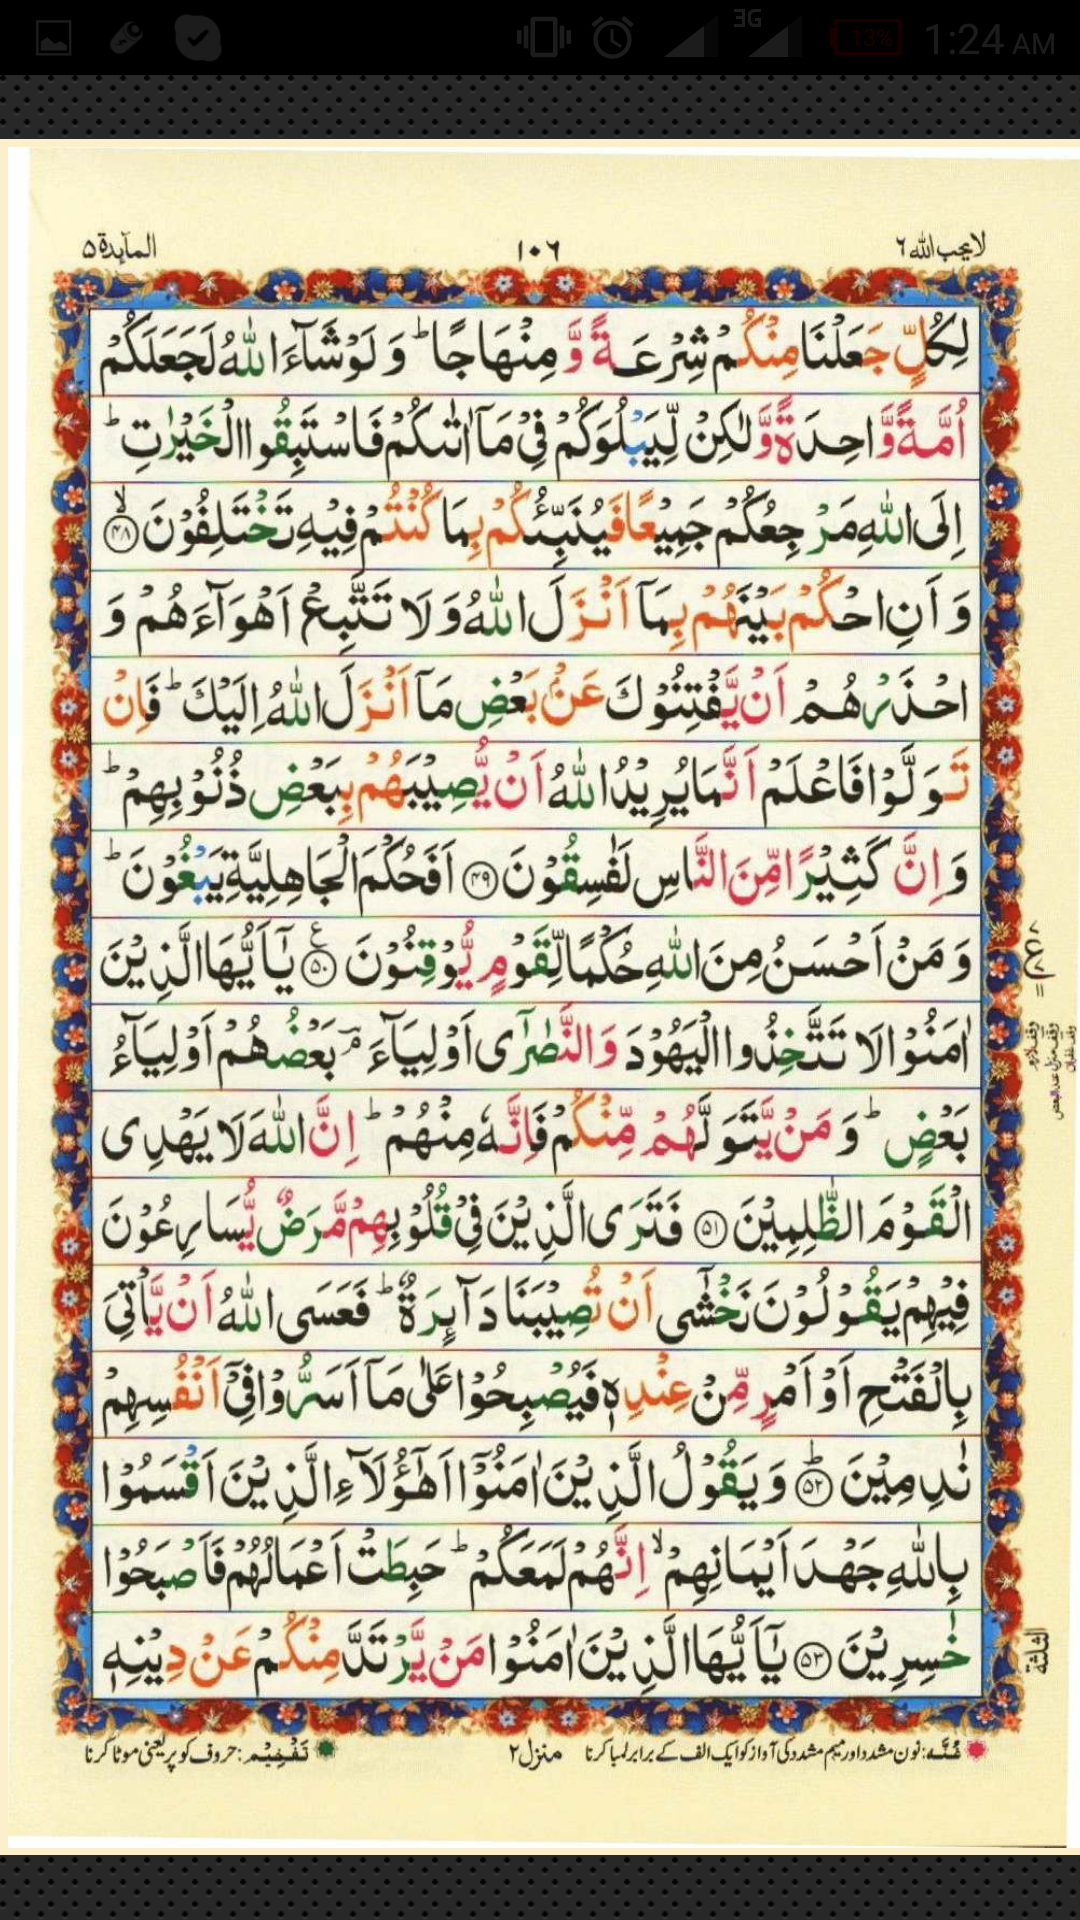 3G
13%
1:24 AM
لا يحب الله ٦
١٠٦
المآىدة ٥
لِكُلٍّ جَعَلْنَا مِنْكُمْ شِرْعَةً وَّ مِنْهَاجًا ؕ وَ لَوْ شَآءَ اللّٰهُ لَجَعَلَكُمْ
اُمَّةً وَّاحِدَةً وَّلٰكِنْ لِّيَبْلُوَكُمْ فِیْ مَاۤ اٰتٰىكُمْ فَاسْتَبِقُوا الْخَيْرٰتِ ؕ
اِلَى اللّٰهِ مَرْجِعُكُمْ جَمِيْعًا فَيُنَبِّئُكُمْ بِمَا كُنْتُمْ فِيْهِ تَخْتَلِفُوْنَ ۙ﴿۴۸﴾
وَ اَنِ احْكُمْ بَيْنَهُمْ بِمَاۤ اَنْزَلَ اللّٰهُ وَ لَا تَتَّبِعْ اَهْوَآءَهُمْ وَ
احْذَرْهُمْ اَنْ يَّفْتِنُوْكَ عَنْۢ بَعْضِ مَاۤ اَنْزَلَ اللّٰهُ اِلَيْكَ ؕ فَاِنْ
تَوَلَّوْا فَاعْلَمْ اَنَّمَا يُرِيْدُ اللّٰهُ اَنْ يُّصِيْبَهُمْ بِبَعْضِ ذُنُوْبِهِمْ ؕ
وَ اِنَّ كَثِيْرًا مِّنَ النَّاسِ لَفٰسِقُوْنَ ﴿۴۹﴾ اَفَحُكْمَ الْجَاهِلِيَّةِ يَبْغُوْنَ ؕ
وَ مَنْ اَحْسَنُ مِنَ اللّٰهِ حُكْمًا لِّقَوْمٍ يُّوْقِنُوْنَ ﴿۵۰﴾ ع يٰۤاَيُّهَا الَّذِيْنَ
اٰمَنُوْا لَا تَتَّخِذُوا الْيَهُوْدَ وَ النَّصٰرٰۤى اَوْلِيَآءَ ۘ بَعْضُهُمْ اَوْلِيَآءُ
بَعْضٍ ؕ وَ مَنْ يَّتَوَلَّهُمْ مِّنْكُمْ فَاِنَّهٗ مِنْهُمْ ؕ اِنَّ اللّٰهَ لَا يَهْدِی
الْقَوْمَ الظّٰلِمِيْنَ ﴿۵۱﴾ فَتَرَى الَّذِيْنَ فِیْ قُلُوْبِهِمْ مَّرَضٌ يُّسَارِعُوْنَ
فِيْهِمْ يَقُوْلُوْنَ نَخْشٰۤى اَنْ تُصِيْبَنَا دَآىِٕرَةٌ ؕ فَعَسَى اللّٰهُ اَنْ يَّاْتِیَ
بِالْفَتْحِ اَوْ اَمْرٍ مِّنْ عِنْدِهٖ فَيُصْبِحُوْا عَلٰى مَاۤ اَسَرُّوْا فِیْۤ اَنْفُسِهِمْ
نٰدِمِيْنَ ؕ﴿۵۲﴾ وَ يَقُوْلُ الَّذِيْنَ اٰمَنُوْۤا اَهٰۤؤُلَآءِ الَّذِيْنَ اَقْسَمُوْا
بِاللّٰهِ جَهْدَ اَيْمَانِهِمْ ۙ اِنَّهُمْ لَمَعَكُمْ ؕ حَبِطَتْ اَعْمَالُهُمْ فَاَصْبَحُوْا
خٰسِرِيْنَ ﴿۵۳﴾ يٰۤاَيُّهَا الَّذِيْنَ اٰمَنُوْا مَنْ يَّرْتَدَّ مِنْكُمْ عَنْ دِيْنِهٖ
الثلثة
غُنَّه: نون مشدد اور میم مشدد کی آواز کو ایک الف کے برابر لمبا کرنا
منزل ٢
تَفْخِيْم: حروف کو پر یعنی موٹا کرنا